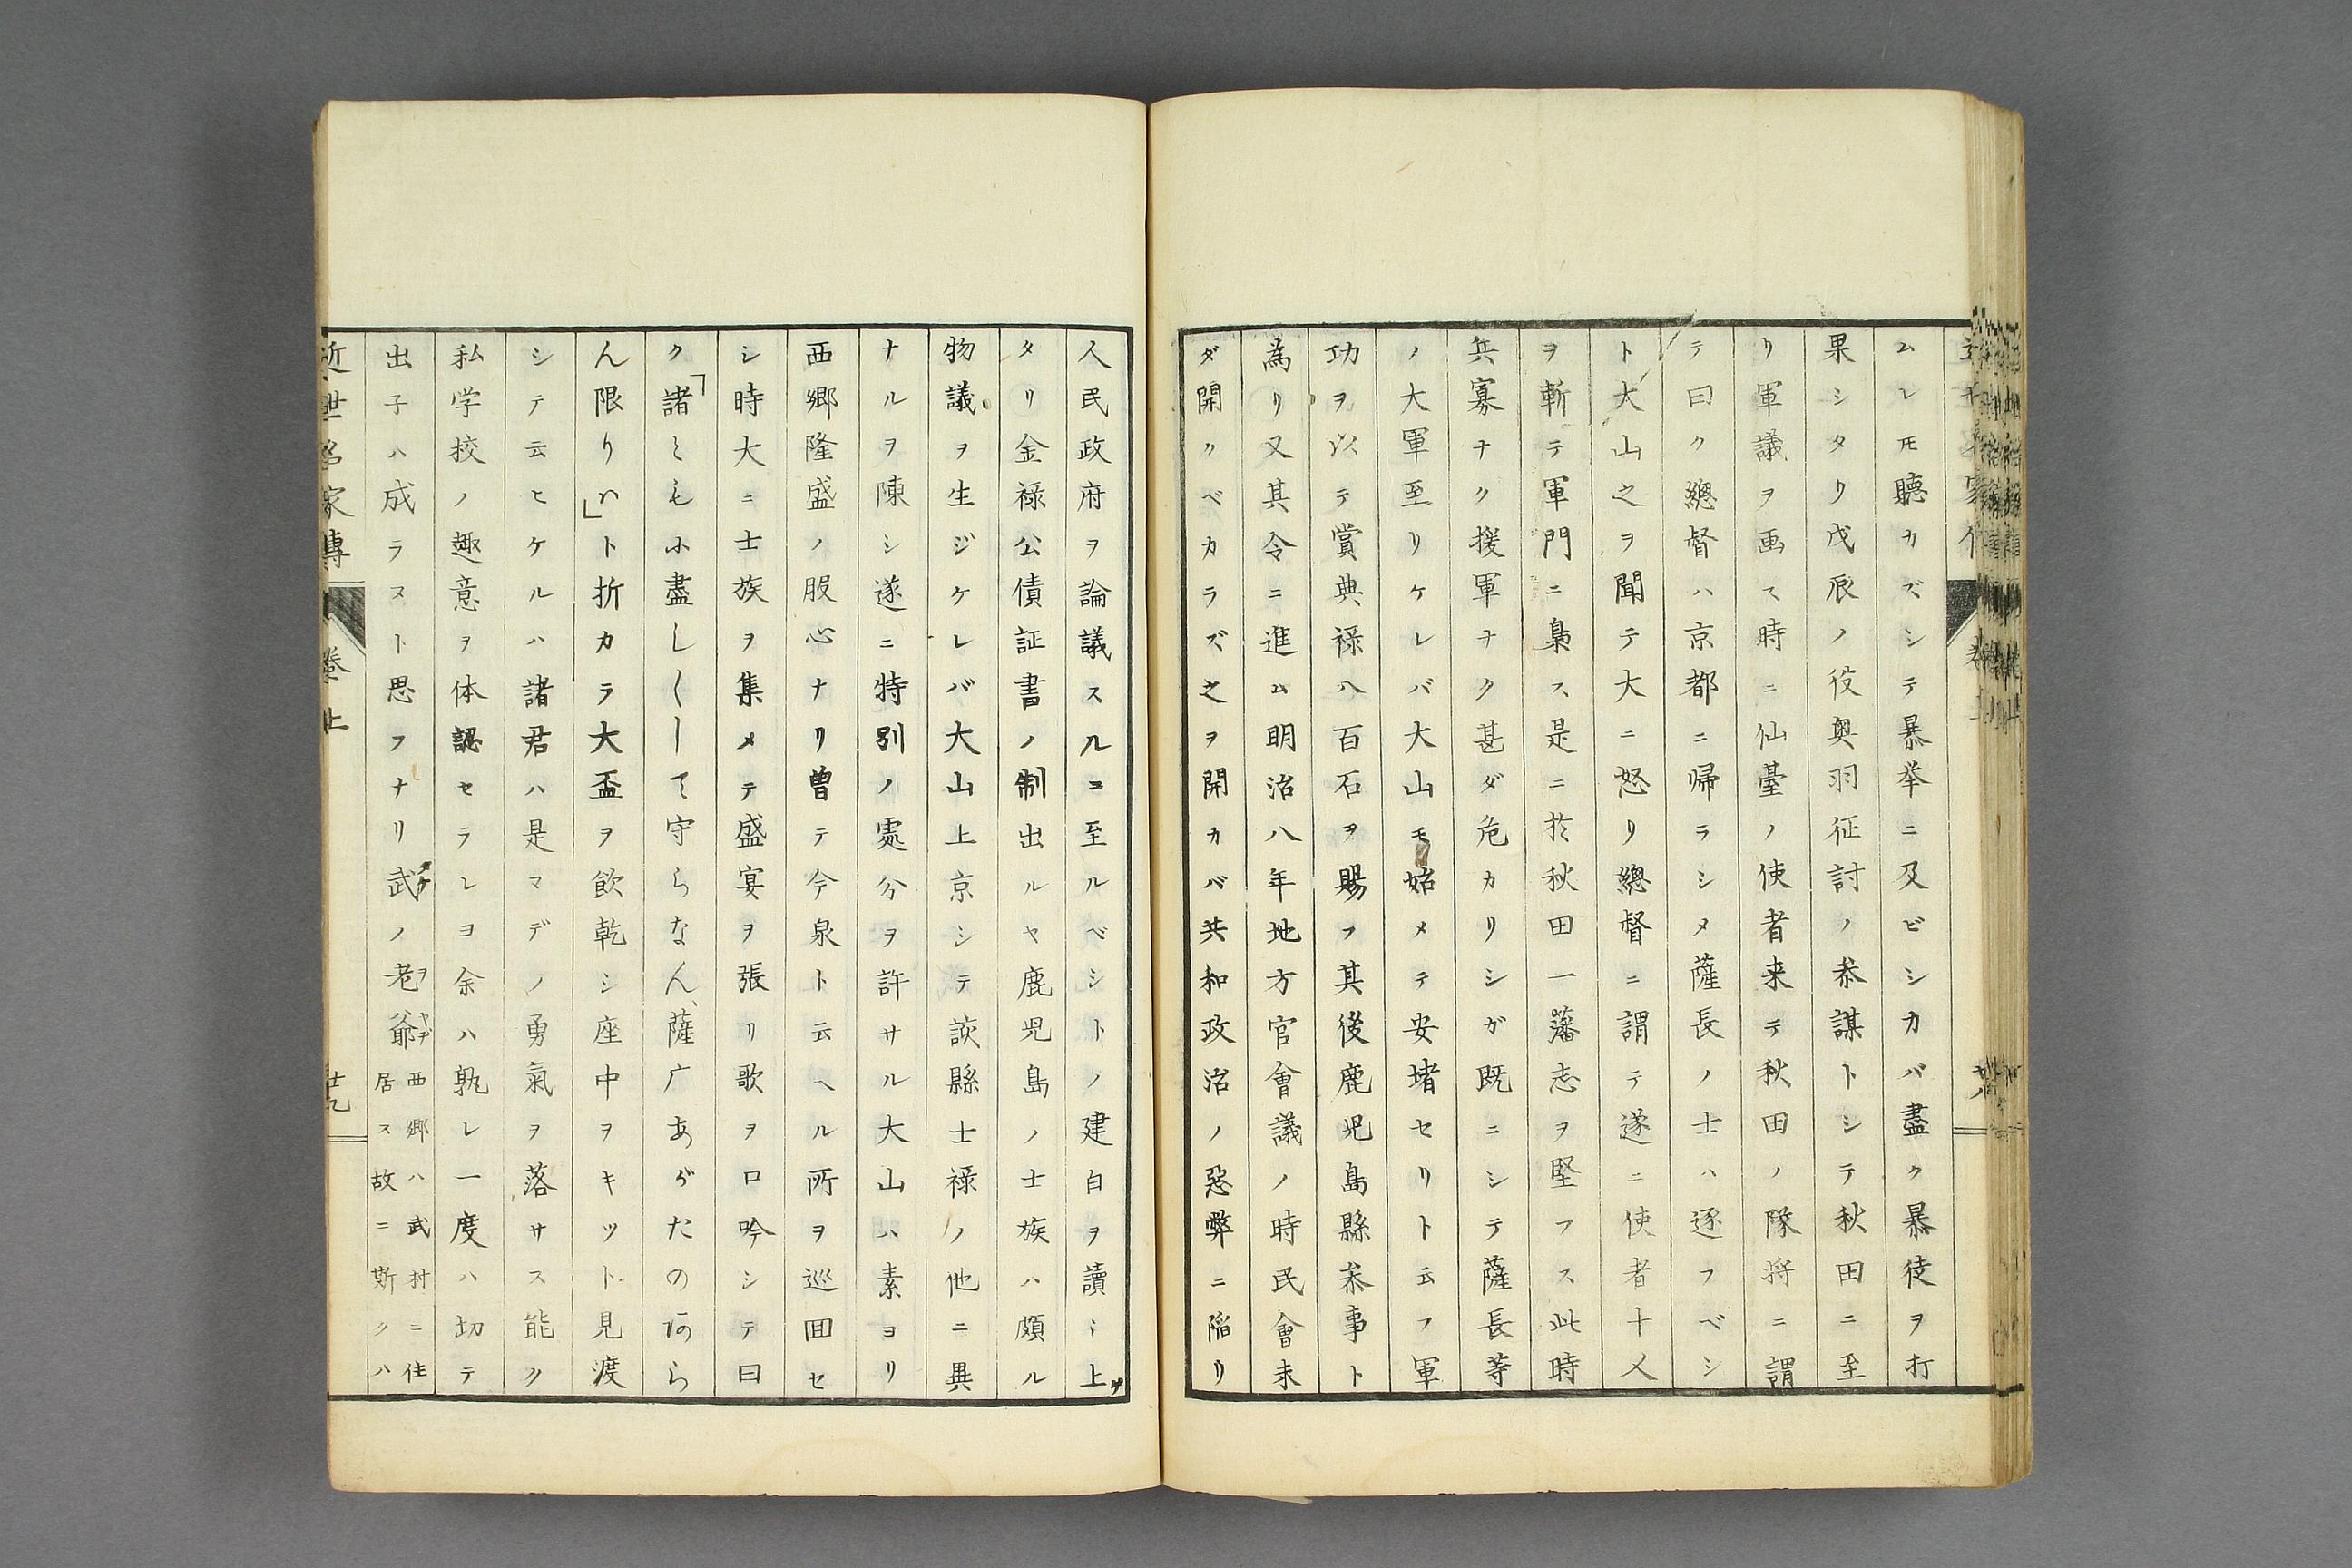 ムレ𪜈聽カズシテ暴挙ニ及ビシカバ盡ク暴徒ヲ打
果シタリ戊辰ノ役奥羽征討ノ叅謀トシテ秋田ニ至
リ軍議ヲ画ス時ニ仙臺ノ使者来テ秋田ノ隊将ニ謂
テ曰ク總督ハ京都ニ帰ラシメ薩長ノ士ハ逐フベシ
ト大山之ヲ聞テ大ニ怒リ總督ニ謂テ遂ニ使者十人
ヲ斬テ軍門ニ梟ス是ニ於秋田一藩志ヲ堅フス此時
兵寡ナク援軍ナク甚ダ危カリシガ既ニシテ薩長等
ノ大軍至リケレバ大山モ始メテ安堵セリト云フ軍
功ヲ以テ賞典禄八百石ヲ賜フ其後鹿児島縣叅事ト
為リ又其令ニ進ム明治八年地方官會議ノ時民會未
ダ開クベカラズ之ヲ開カバ共和政治ノ惡弊ニ陥リ
人民政府ヲ論議スルニ至ルベシトノ建白ヲ讀ミ上ゲ
タリ金禄公債証書ノ制出ルヤ鹿児島ノ士族ハ頗ル
物議ヲ生ジケレバ大山上京シテ該縣士禄ノ他ニ異
ナルヲ陳シ遂ニ特別ノ處分ヲ許サル大山ハ素ヨリ
西郷隆盛ノ股心ナリ曽テ今泉ト云ヘル所ヲ巡回セ
シ時大ニ士族ヲ集メテ盛宴ヲ張リ歌ヲ口吟シテ曰
ク「諸ともに盡しくーて守らなん、薩广あがたのあら
ん限りハ」ト折カラ大盃ヲ飲乾シ座中ヲキット見渡
シテ云ヒケルハ諸君ハ是マデノ勇氣ヲ落サス能ク
私学校ノ趣意ヲ体認セラレヨ余ハ孰レ一度ハ切テ
出子ハ成ラヌト思フナリ武タケノ老ヲ爺ヤヂ西郷ハ武村ニ住居ス故ニ斯クハ
近世名家傳 巻上 廿九